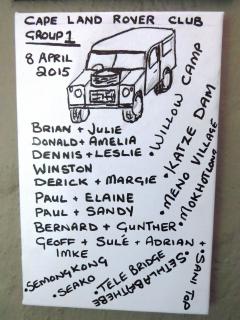 CAPE LAND ROVER CLUB
GROUP 1
8 APRIL
2015
BRIAN + JULIE
DONALD + AMELIA
DENNIS + LESLIE
WINSTON
DERICK + MARGIE
PAUL + ELAINE
PAUL + SANDY
BERNARD + GUNTHER
GEOFF + SULÉ + ADRIAN +
IMKE
• WILLOW CAMP
• KATZE DAM
• MENO VILLAGE
• MOKHOTLONG
• SANI TOP
• SEHLABATHEBE
• TELE BRIDGE
• SEAKO
• SEMONGKONG